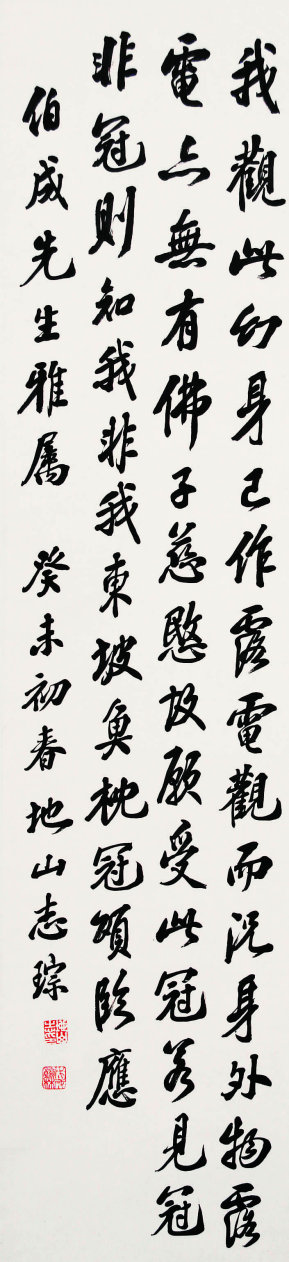 我觀此幻身已作露電觀而況身外物露
電亦無有佛子慈愍故願受此冠若見冠
非冠則知我非我東坡魚枕冠頌臨應
伯成先生雅屬 癸未初春地山志琮